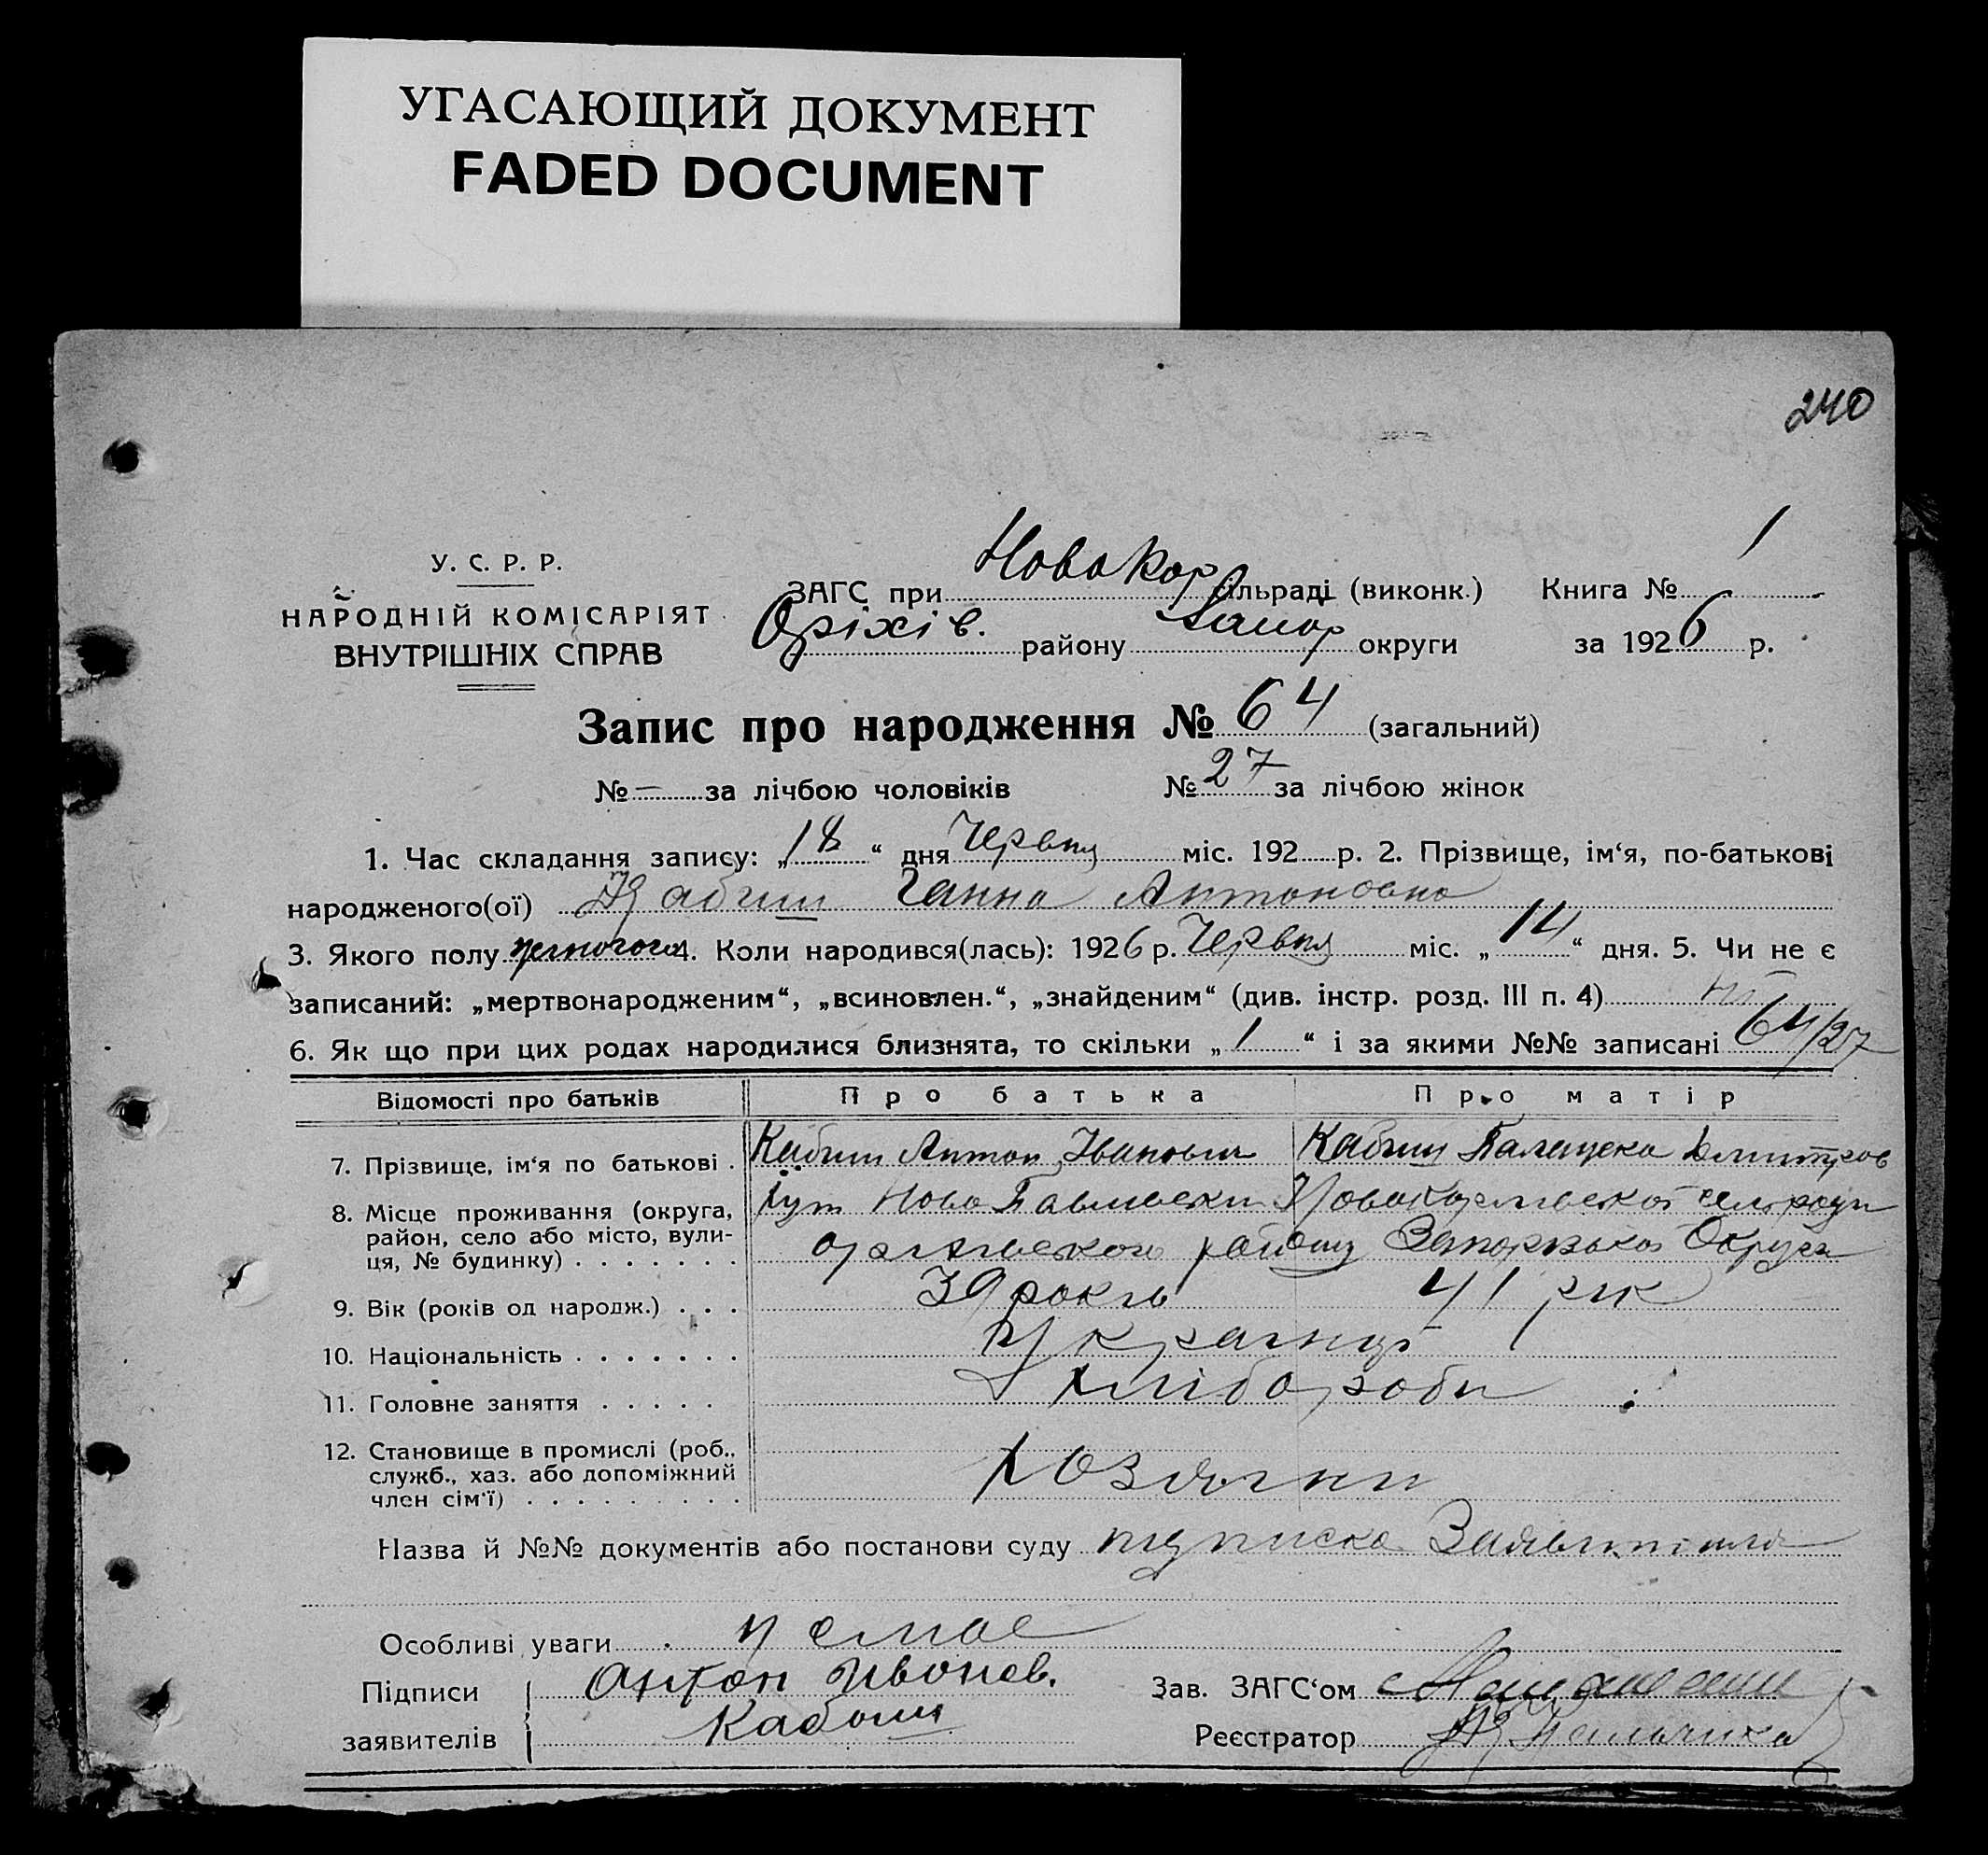 УГАСАЮЩИЙ ДОКУМЕНТ
FADED DOCUMENT
240
У. С. Р. Р.
НАРОДНІЙ КОМІСАРІЯТ
ВНУТРІШНІХ СПРАВ
ЗАГС при Новокар сільраді (виконк.) Книга № 1
Оріхів. району Запор округи за 1926 р.
Запис про народження № 64 (загальний)
№ — за лічбою чоловіків № 27 за лічбою жінок
1. Час складання запису: „18“ дня Червня міс. 192 р. 2. Прізвище, ім‘я, по-батькові
народженого(ої) Кабиш Ганна Антоновна
3. Якого полу жіночого 4. Коли народився(лась): 1926 р. Червня міс. „14“ дня. 5. Чи не є
записаний: „мертвонародженим“, „всиновлен.“, „знайденим“ (див. інстр. розд. III п. 4) ні
6. Як що при цих родах народилися близнята, то скільки „1“ і за якими №№ записані 64/27
Відомості про батьків Про батька Про матір
7. Прізвище, ім‘я по батькові . Кабиш Антон Іванович Кабиш Палащека Дмитров
8. Місце проживання (округа, район, село або місто, вули-ця, № будинку) . . . . . . . Хут Ново Павлівски Новокарлівської сельради
оріхівского району Запорізької Округи
9. Вік (років од народж.) . . . 39 років 41 рік
10. Національність . . . . . . . Українці
11. Головне заняття . . . . . Хлібороби
12. Становище в промислі (роб., служб., хаз. або допоміжний член сім‘ї) . . . . . . . . . Хозяини
Назва й №№ документів або постанови суду підписка Заявителя
Особливі уваги немає
Підписи Антон Ивонов. Зав. ЗАГС‘ом
заявителів Кабыш Реєстратор